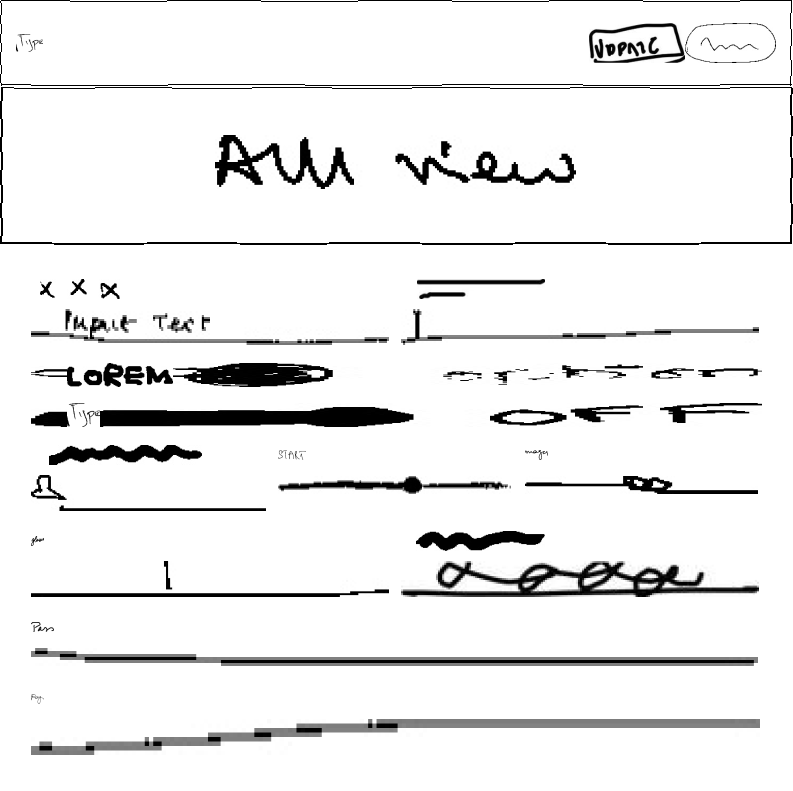 Type UPDATE
All view
x x x
Input Text
LOREM
Type
START
images
Pass